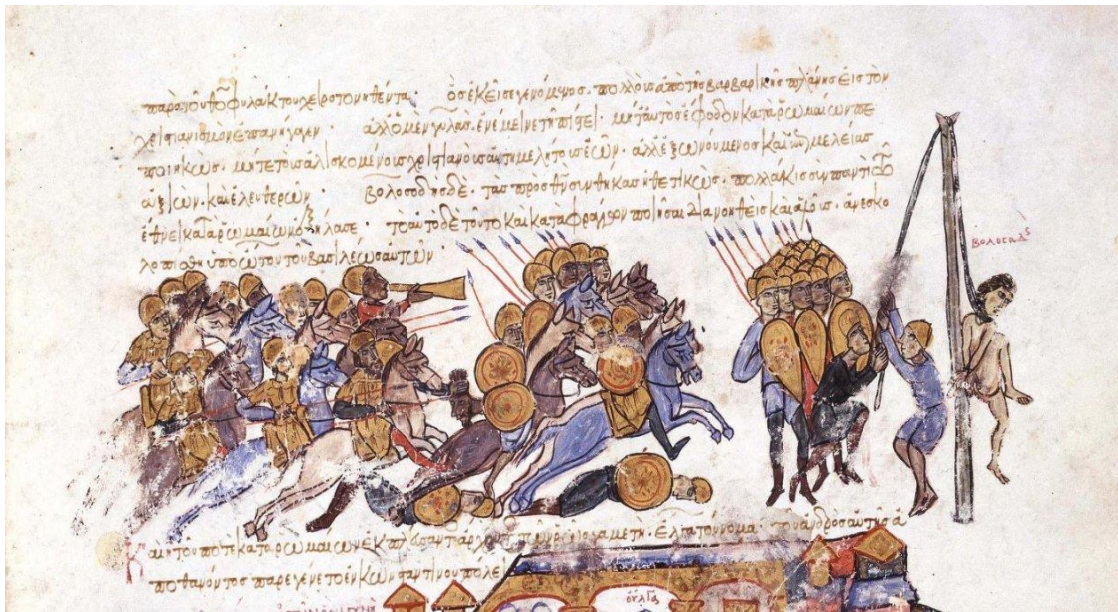 παρὰ τοῦ θεοφυλάκτου χειροτονηθέντα. ὃς ἐκεῖσε γενόμενος. πολλοὺς ἀπὸ τῆς βαρβαρικῆς πλάνης εἰς τὸν
χριστιανισμὸν ἐπανήγαγεν. ἀλλ' ὁ μὲν γυλᾶς. ἐνέμεινε τῇ πίστει. μήτ' αὐτὸς ἔφοδον κατὰ ῥωμαίων πε
ποιηκώς. μήτε τοὺς ἁλισκομένους χριστιανοὺς ἀτημελήτους ἐῶν. ἀλλ' ἐξωνούμενος καὶ ἐπιμελείας
ἀξιῶν. καὶ ἐλευθερῶν. βολοσοδης δὲ. τὰς πρὸς θν συνθήκας ἠθετικὼς. πολλάκις σὺν παντὶ τῶ
ἔθνει κατὰ ῥωμαίων ἐξήλασε. τὸ αὐτὸ δὲ τοῦτο καὶ κατὰ φράγγων ποιῆσαι διανοηθεὶς καὶ ἁλοὺς. ἀνεσκο
λοπίσθη ὑπὸ ὤτου τοῦ βασιλέως αὐτῶν
βολοσοδς
Καὶ ἡ τοῦ ποτὲ κατὰ ῥωμαίων ἐκπλεύσαντος ἄρχοντος τῶν ῥῶς γαμετὴ. ἔλγα τοὔνομα. τοῦ ἀνδρὸς αὐτῆς ἀ
ποθανόντος παρεγένετο ἐν κωνσταντινουπόλει